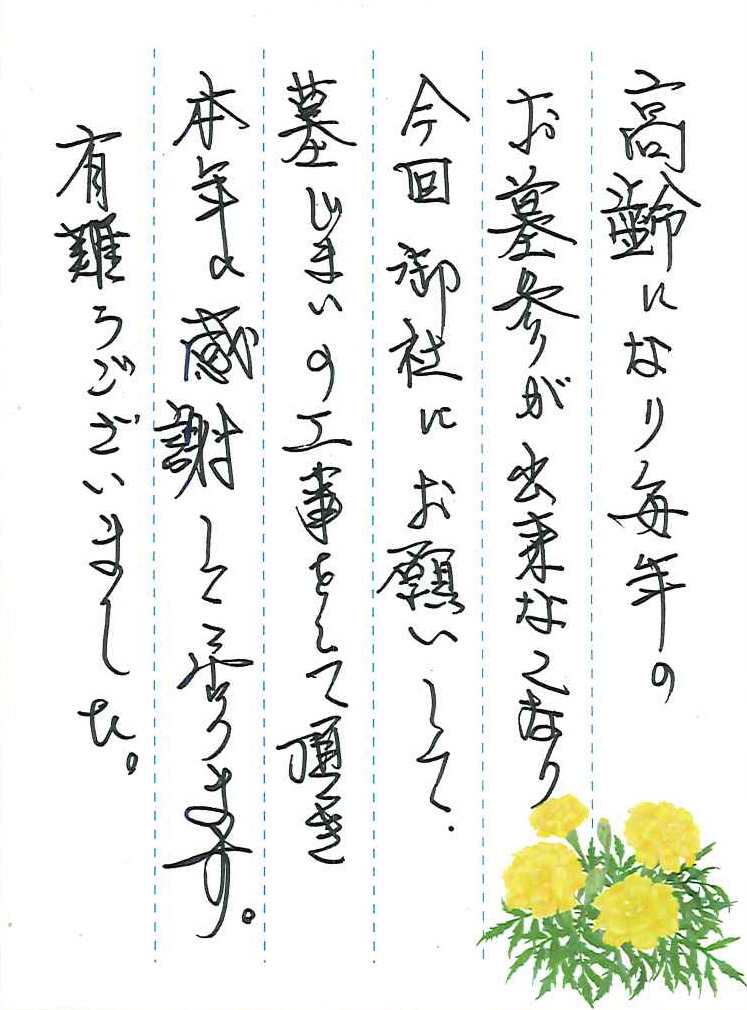 高齢になり毎年の
お墓参が出来なくなり
今回御社にお願いして、
墓じまいの工事をして頂き
本年は感謝して居ります。
有難うございました。